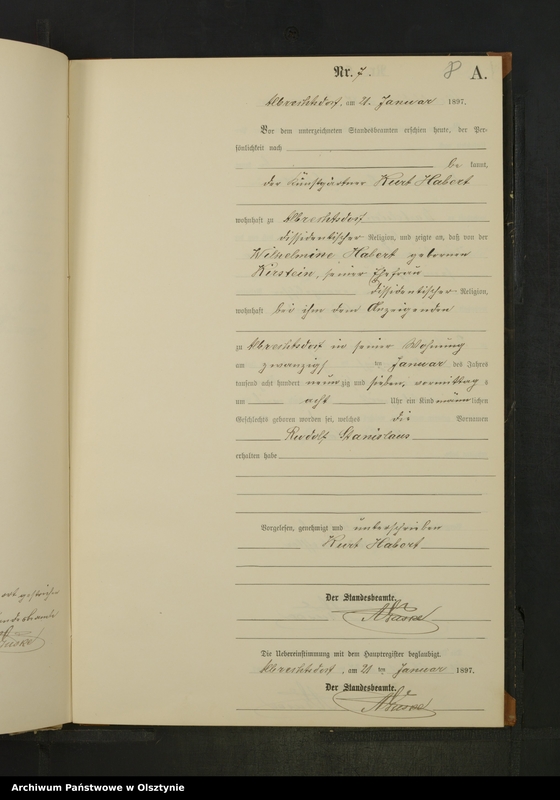 Nr. 7. 8 A.
Albrechtsdorf, am 21. Januar 1897.
Vor dem unterzeichneten Standesbeamten erschien heute, der Per-
sönlichkeit nach
be kannt,
der Kunstgärtner Kurt Habort
wohnhaft zu Albrechtsdorf
dissidentischer Religion, und zeigte an, daß von der
Wilhelmine Habort geborenen
Kirstein, seiner Ehefrau
dissidentischer Religion,
wohnhaft bei ihm dem Anzeigenden
zu Albrechtsdorf in seiner Wohnung
am zwanzigsten Januar des Jahres
tausend acht hundert neunzig und sieben, vormittags
um acht Uhr ein Kind männlichen
Geschlechts geboren worden sei, welches die Vornamen
Rudolf Stanislaus
erhalten habe
Vorgelesen, genehmigt und unterschrieben
Kurt Habort
Der Standesbeamte.
Die Uebereinstimmung mit dem Hauptregister beglaubigt.
Albrechtsdorf, am 21 ten Januar 1897.
Der Standesbeamte.
Archiwum Państwowe w Olsztynie